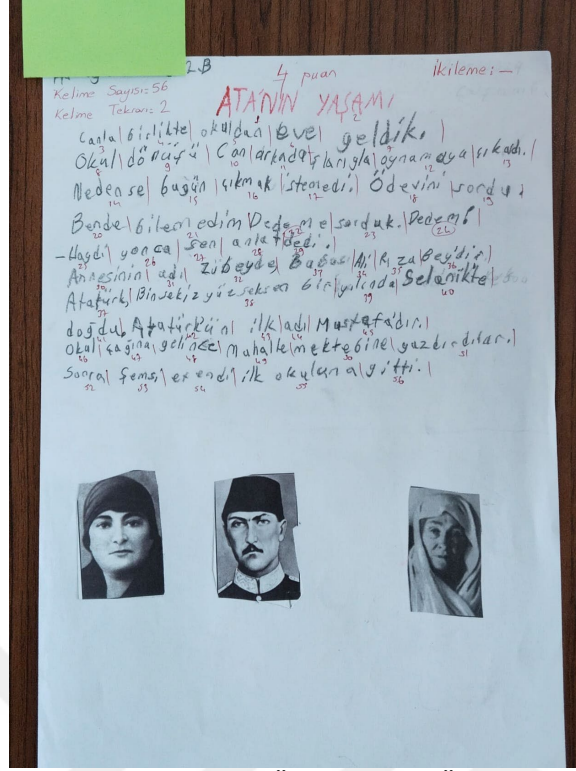 2.B
4 puan
İkileme: -
Kelime Sayısı: 56
Kelime Tekrarı: 2
ATA'NIN YAŞAMI
Canla birlikte okuldan eve geldik.
Okul dönüşü Can arkadaşlarıyla oynamaya çıkardı.
Nedense bugün çıkmak istemedi. Ödevini sordu.
Bende bilemedim Dedeme sorduk. Dedem!
- Haydi yonca sen anlat dedi.
Annesinin adı Zübeyde Babası Ali Rıza Bey'dir.
Atatürk, Binsekizyüzseksen bir yılında Selanikte
doğdu. Atatürkün ilk adı Mustafadır.
Okul çağına gelince Mahalle mektebine yazdırdılar.
Sonra Şemsi efendi ilk okuluna gitti.